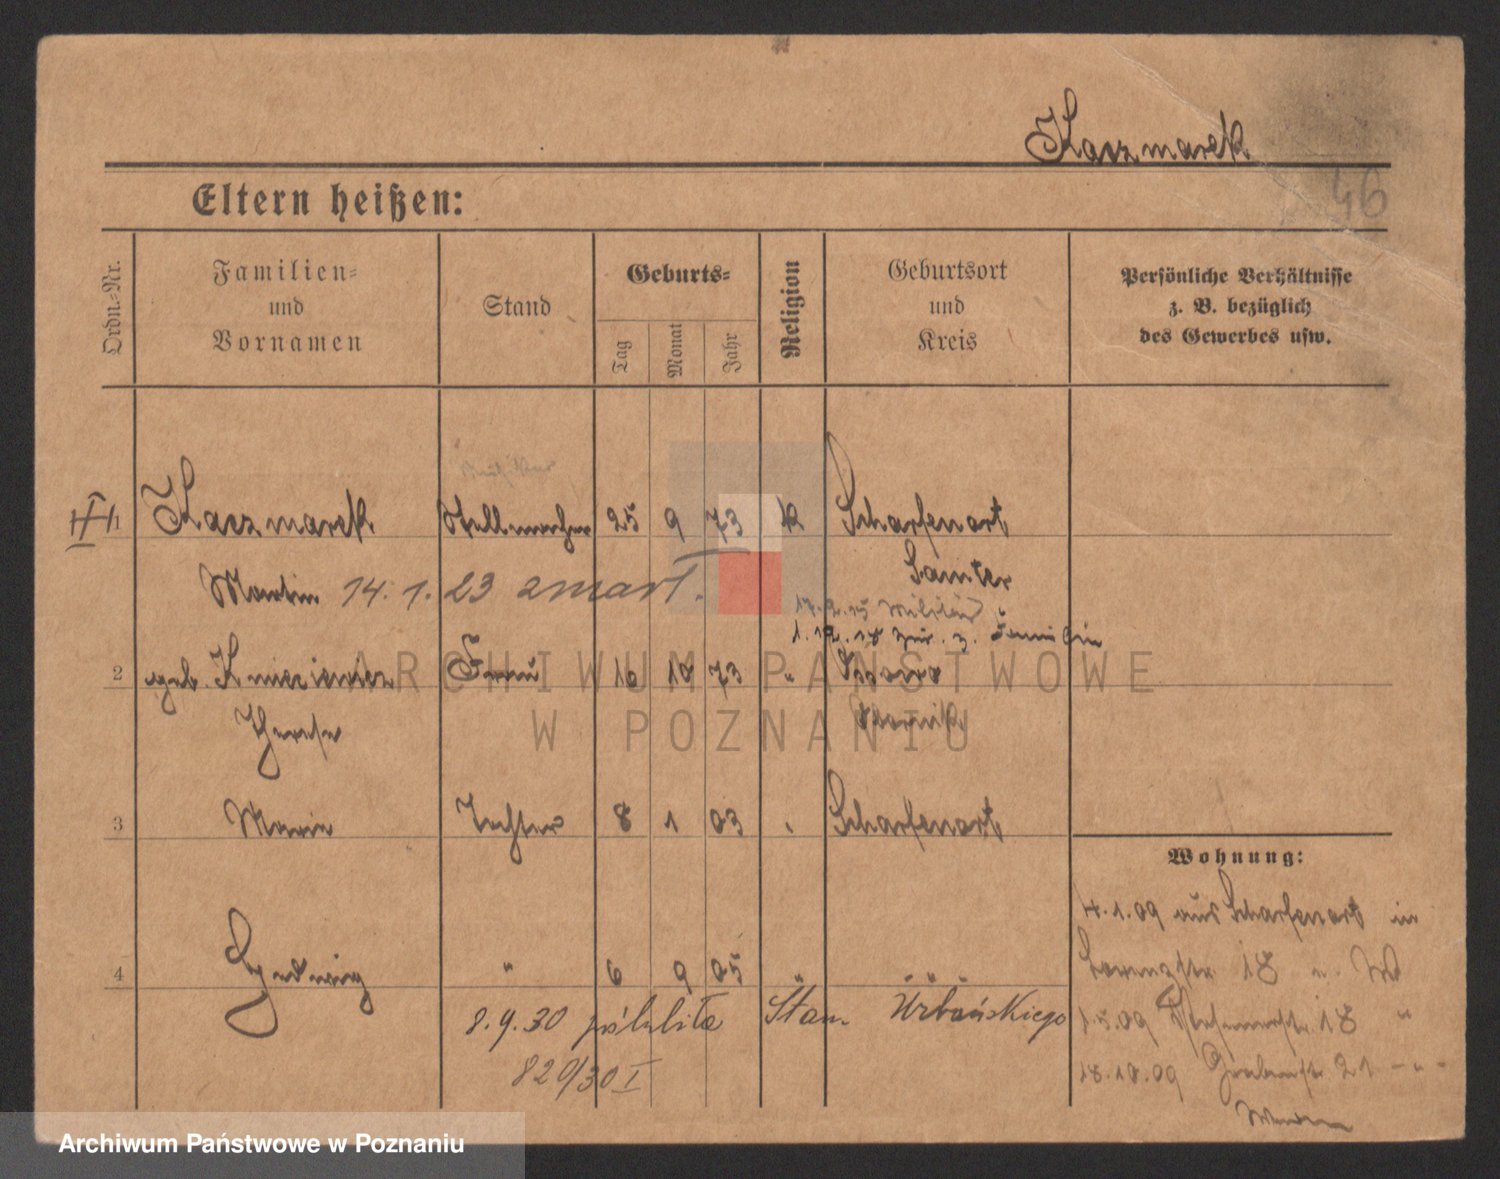 Kaczmarek
46
Eltern heißen:
Ordn.-Nr.
Familien- und Vornamen
Stand
Geburts-
Tag
Monat
Jahr
Religion
Geburtsort und Kreis
Persönliche Verhältnisse z. B. bezüglich des Gewerbes usw.
1 Kaczmarek Stellmacher 25 9 73 k Scharfenort
Martin 14.1.23 zmarł. Samter
17.2.15 Militär
1.12.18 zur. z. Familie
2 geb. Frau 16 10 73 "
Therese
3 Marie Tochter 8 1 03 " Scharfenort
Wohnung:
4.1.09 aus Scharfenort in
4 Hedwig " 6 9 05 "
18 n. W
8.9.30 poślubiła Stan. Urbańskiego
1.5.09 18 "
820/30 I
18.10.09 Grabenstr. 21 - " -
ARCHIWUM PAŃSTWOWE
W POZNANIU
Archiwum Państwowe w Poznaniu